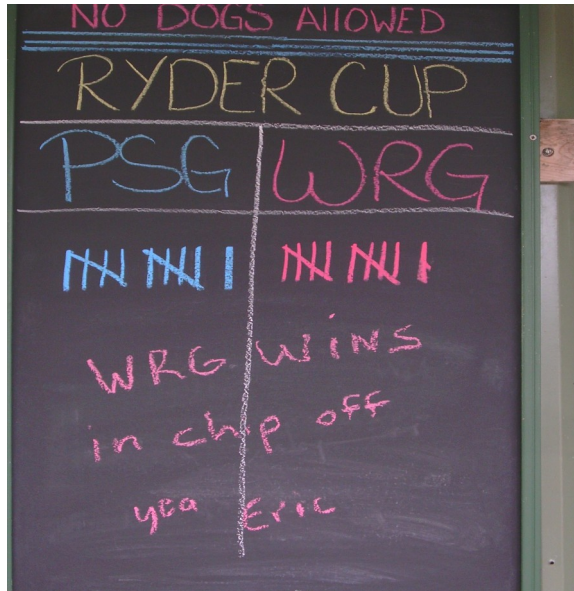 NO DOGS AllOWED
RYDER CUP
PSG WRG
WRG WiNS
in chip off
yea Eric